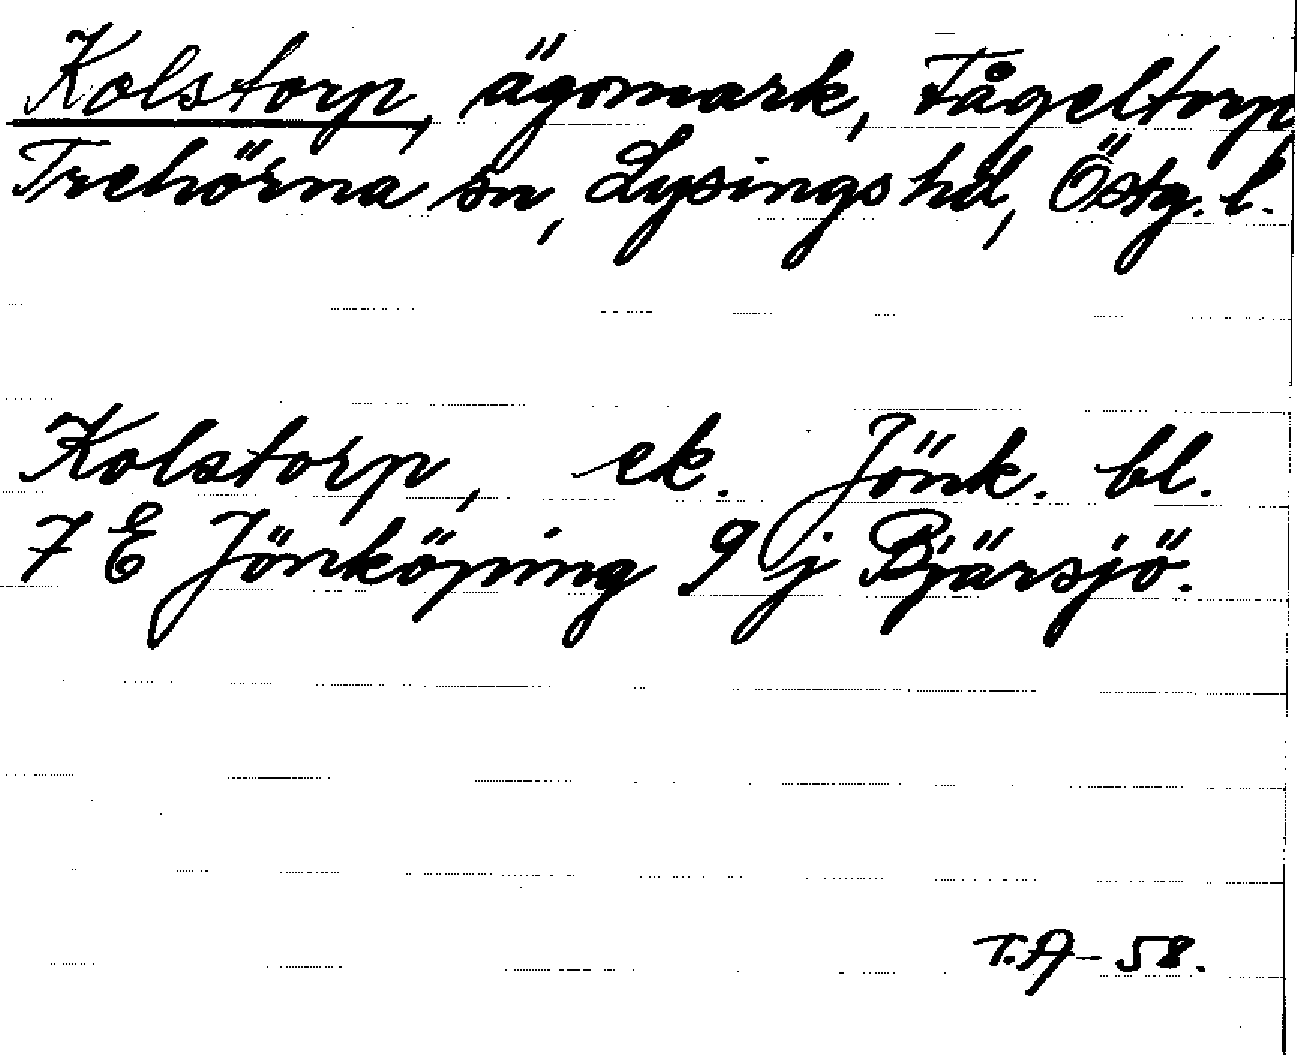 Kolstorp, ägomark, Fågeltorp
Trehörna sn, Lysings hd, Östg. l.
Kolstorp, ek. Jönk. bl.
7 E Jönköping 9 j Bjärsjö.
T.A - 58.